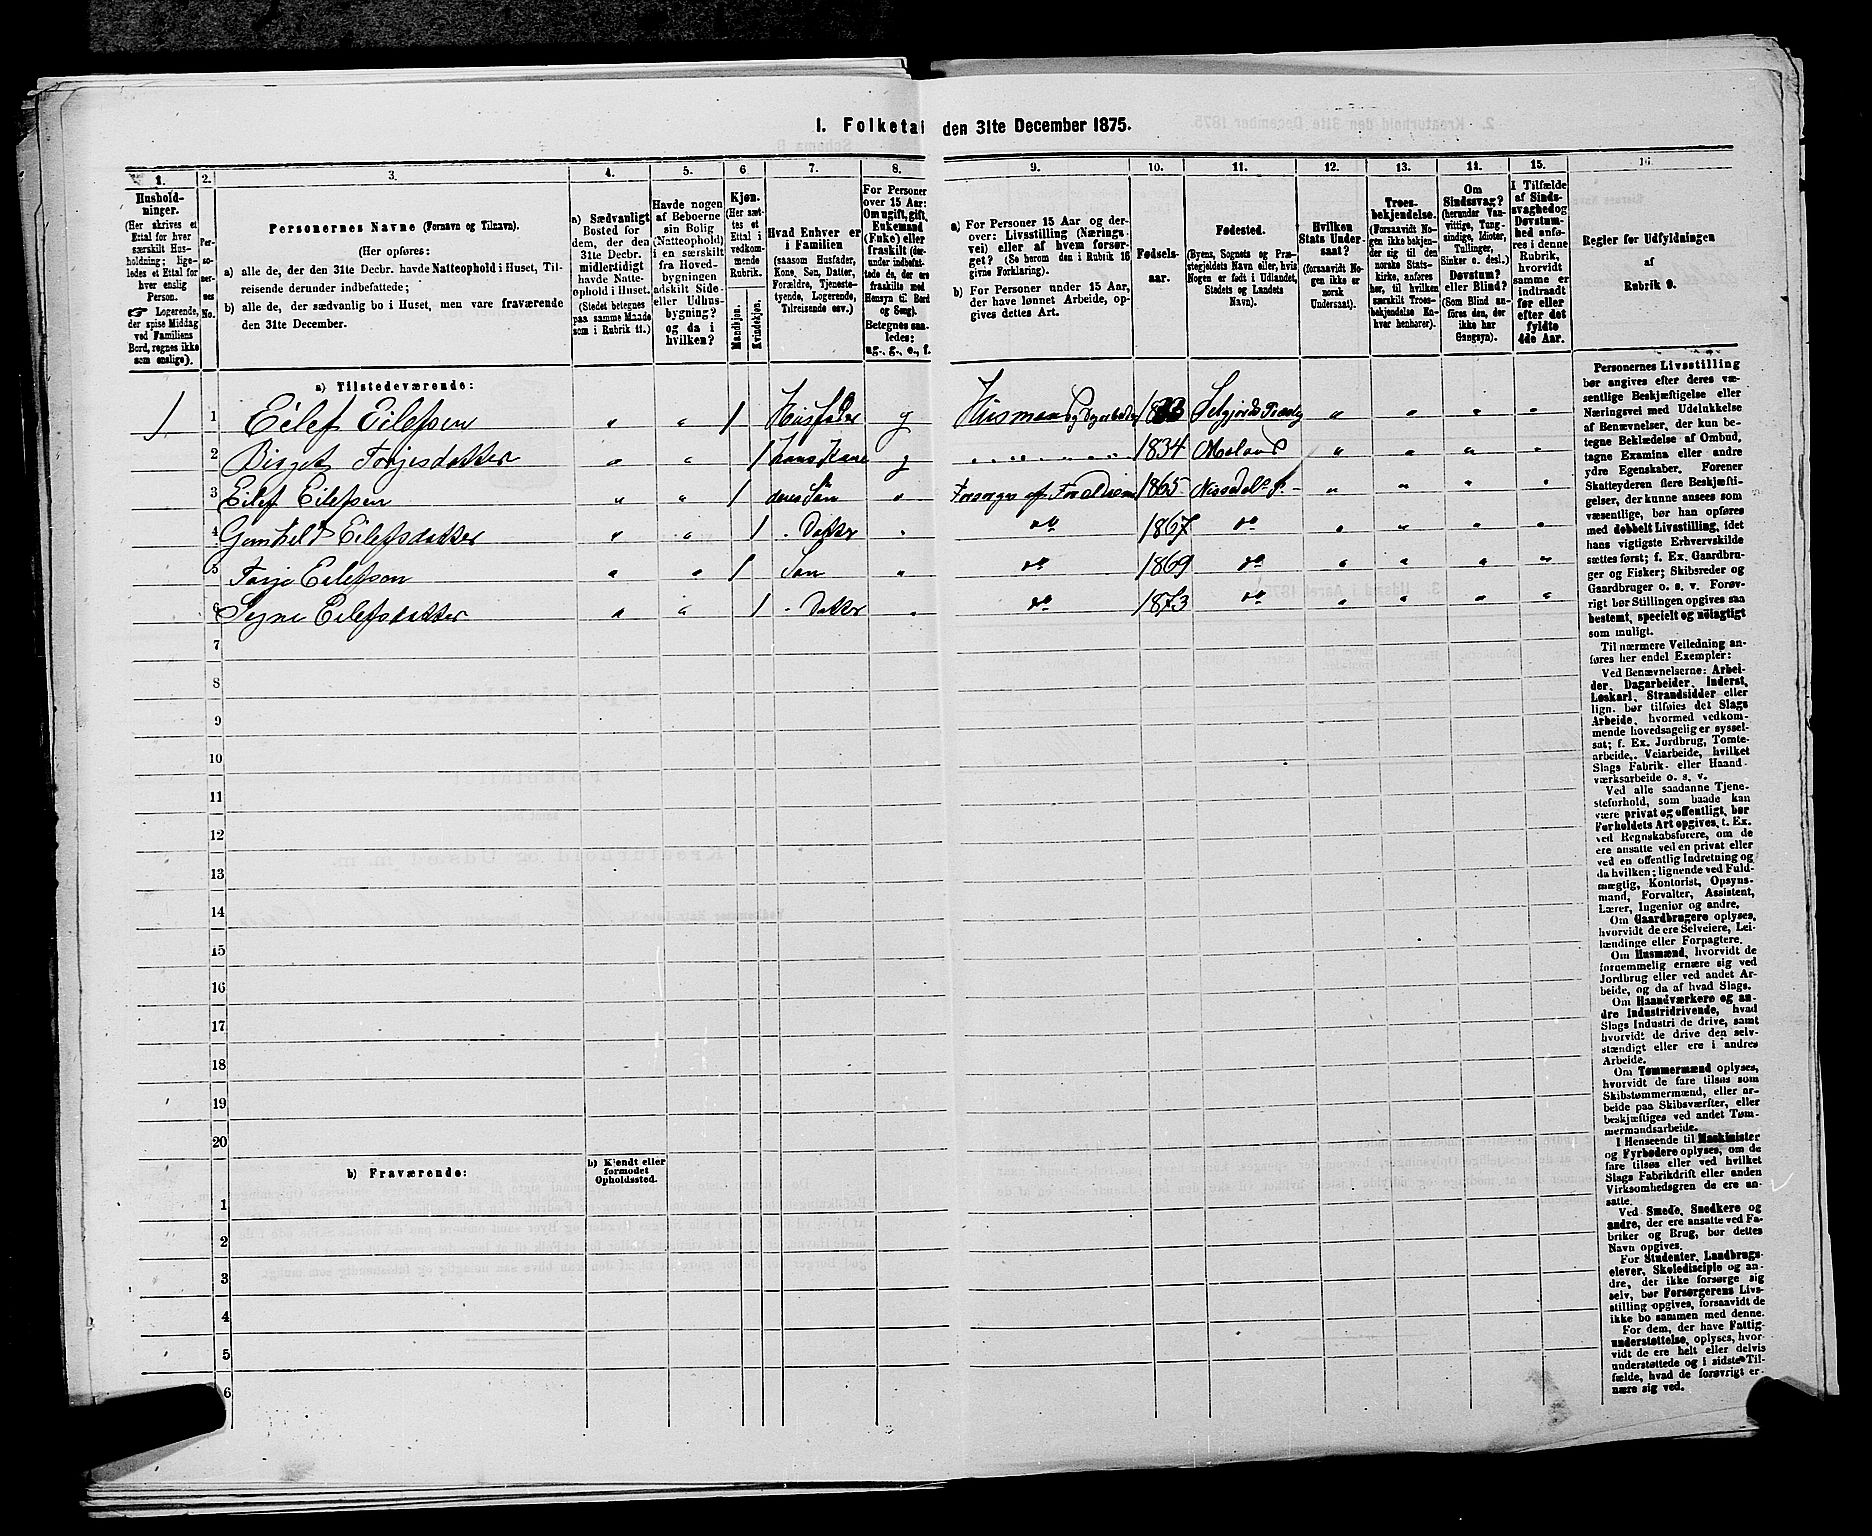 1. Folketal den 31te December 1875.
1. 2. 3. 4. 5. 6 7. 8. 9. 10. 11. 12. 13. 14. 15. 16
Husholdninger.
(Her skrives et
Ettal for hver
særskilt Husholdning;
ligeledes et Ettal for
hver enslig
Person.
☞ Logerende,
der spise Middag
ved Familiens
Bord, regnes ikke
som enslige).
Personernes No.
Personernes Navne (Fornavn og Tilnavn).
(Her opføres:
a) alle de, der den 31te Decbr. havde Natteophold i Huset, Tilreisende derunder indbefattede;
b) alle de, der sædvanlig bo i Huset, men vare fraværende
den 31te December.
a) Sædvanligt
Bosted for
dem, der den
31te Decbr.
midlertidigt
havde Natteophold i Huset.
(Stedet betegnes
paa samme Maade
som i Rubrik 11.)
Havde nogen
af Beboerne
sin Bolig
(Natteophold)
i en særskilt
fra Hovedbygningen
adskilt Side-
eller Udhusbygning?
og da i
hvilken?
Kjøn.
(Her sættes et
Ettal i
vedkommende
Rubrik.
Mandkjøn. Kvindekjøn.
Hvad Enhver er
i Familien
(saasom Husfader,
Kone, Søn, Datter,
Forældre, Tjenestetyende, Logerende,
Tilreisende osv.)
For Personer
over 15 Aar:
Om ugift, gift,
Enkemand
(Enke) eller
fraskilt (derunder indbefattede de, der ere
fraskilte med
Hensyn til Bord
og Seng).
Betegnes saaledes:
ug., g., e., f.
a) For Personer 15 Aar og derover: Livsstilling (Næringsvei) eller af hvem forsørget? (Se herom den i Rubrik 16
givne Forklaring).
b) For Personer under 15 Aar,
der have lønnet Arbeide, opgives dettes Art.
Fødselsaar.
Fødested.
(Byens, Sognets og Præstegjeldets Navn, eller, hvis
Nogen er født i Udlandet,
Stedets og Landets
Navn).
Hvilken
Stats Undersaat?
(forsaavidt Nogen ikke er
norsk
Undersaat).
Troesbekjendelse.
(Forsaavidt Nogen ikke bekjender sig til den
norske Statskirke, anføres
her, til hvilken
særskilt Troesbekjendelse Enhver henhører).
Om
Sindssvag?
(herunder Vanvittige, Tungsindige, Idioter,
Tullinger,
Sinker o. desl.)
Døvstum?
eller Blind?
(Som Blind anføres den, der
ikke har
Gangsyn).
I Tilfælde
af Sindssvaghed og
Døvstumhed anføres i denne
Rubrik,
hvorvidt
samme er
indtraadt
før eller
efter det
fyldte
4de Aar.
Regler for Udfyldningen
af
Rubrik 9.
a) Tilstedeværende:
1 1 Eilef Eilefsen " " 1 Husfader g Husmand og Dagarbeider Selgjords Præstg " " " "
2 Birget Torjesdatter " " 1 hans Kone g " " " " 1834 " " " "
3 Eilef Eilefsen " " 1 deres Søn " Forsørges af Forældrene 1865 Nissedal P. " " " "
4 Gunhild Eilefsdatter " " 1 " Datter " do 1867 do " " " "
5 Torje Eilefsen " " 1 Søn " do 1869 do " " " "
6 Signe Eilefsdatter " " 1 " Datter " do 1873 do " " " "
7
8
9
10
11
12
13
14
15
16
17
18
19
20
b) Fraværende:
b) Kjendt eller
formodet
Opholdssted.
1
2
3
4
5
6
Personernes Livsstilling
bør angives efter deres væsentlige Beskjæftigelse eller
Næringsvei med Udelukkelse
af Benævnelser, der kun betegne Beklædelse af Ombud,
tagne Examina eller andre
ydre Egenskaber. Forener
Skatteyderen flere Beskjæftigelser, der kunne ansees som
væsentlige, bør han opføres
med dobbelt Livsstilling, idet
hans vigtigste Erhvervskilde
sættes først; f. Ex. Gaardbruger og Fisker; Skibsreder og
Gaardbruger o. s. v. Forøvrigt bør Stillingen opgives saa
bestemt, specielt og nøiagtigt
som muligt.
Til nærmere Veiledning anføres her endel Exempler:
Ved Benævnelserne: Arbeider, Dagarbeider, Inderst,
Løskarl, Strandsidder eller
lign. bør tilføies det Slags
Arbeide, hvormed vedkommende hovedsagelig er sysselsat; f. Ex. Jordbrug, Tomtearbeide, Veiarbeide, hvilket
Slags Fabrik- eller Haandværksarbeide o. s. v.
Ved alle saadanne Tjenesteforhold, som baade kan
være privat og offentligt, bør
Forholdets Art opgives, t. Ex.
ved Regnskabsførere, om de
ere ansatte ved en privat eller
ved en offentlig Indretning og
da hvilken; lignende ved Fuldmægtig, Kontorist, Opsynsmand, Forvalter, Assistent,
Lærer, Ingeniør og andre.
Om Gaardbrugere oplyses,
hvorvidt de ere Selveiere, Leilændinge eller Forpagtere.
Om Husmænd, hvorvidt de
fornemmelig ernære sig ved
Jordbrug eller ved andet Arbeide, og da af hvad Slags.
Om Haandværkere og andre Industridrivende, hvad
Slags Industri de drive, samt
hvorvidt de drive den selvstændigt eller ere i andres
Arbeide.
Om Tømmermænd oplyses,
hvorvidt de fare tilsøs som
Skibstømmermænd, eller arbeide paa Skibsværfter, eller
beskjæftiges ved andet Tømmermandsarbeide.
I Henseende til Maskinister
og Fyrbødere oplyses, om de
fare tilsøs eller ved hvilket
Slags Fabrikdrift eller anden
Virksomhedsgren de ere ansatte.
Ved Smede, Snedkere og
andre, der ere ansatte ved Fabriker og Brug, bør dettes
Navn opgives.
For Studenter, Landbrugselever, Skoledisciple og andre, der ikke forsørge sig
selv, bør Forsørgerens Livsstilling opgives, forsaavidt de
ikke bo sammen med denne.
For dem, der have Fattigunderstøttelse, oplyses, hvorvidt de ere helt eller delvis
understøttede og i sidste Tilfælde, hvad de forøvrigt ernære sig ved.